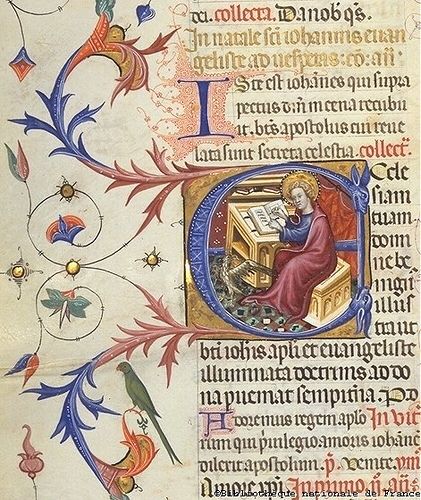 dei. collecta. Da nob' qs.
In natale sci iohannis euan
geliste ad uesperas: co. an.
Iste est iohanes qui supra
pectus dni in cena recubu
it. bts apostolus cui reue
lata sunt secreta celestia. collect.
Eccle
siam
tuam.
domi
ne be
nign
illus
tra ut
bti iohis apli et euangeliste
illuminata doctrinis ad do
na pueniat sempitna.
Adoremus regem aplo
qui priuilegio amoris iohane
dilexit apostolum. Venite.
xpi. In primo n. an.
©Bibliothèque nationale de France